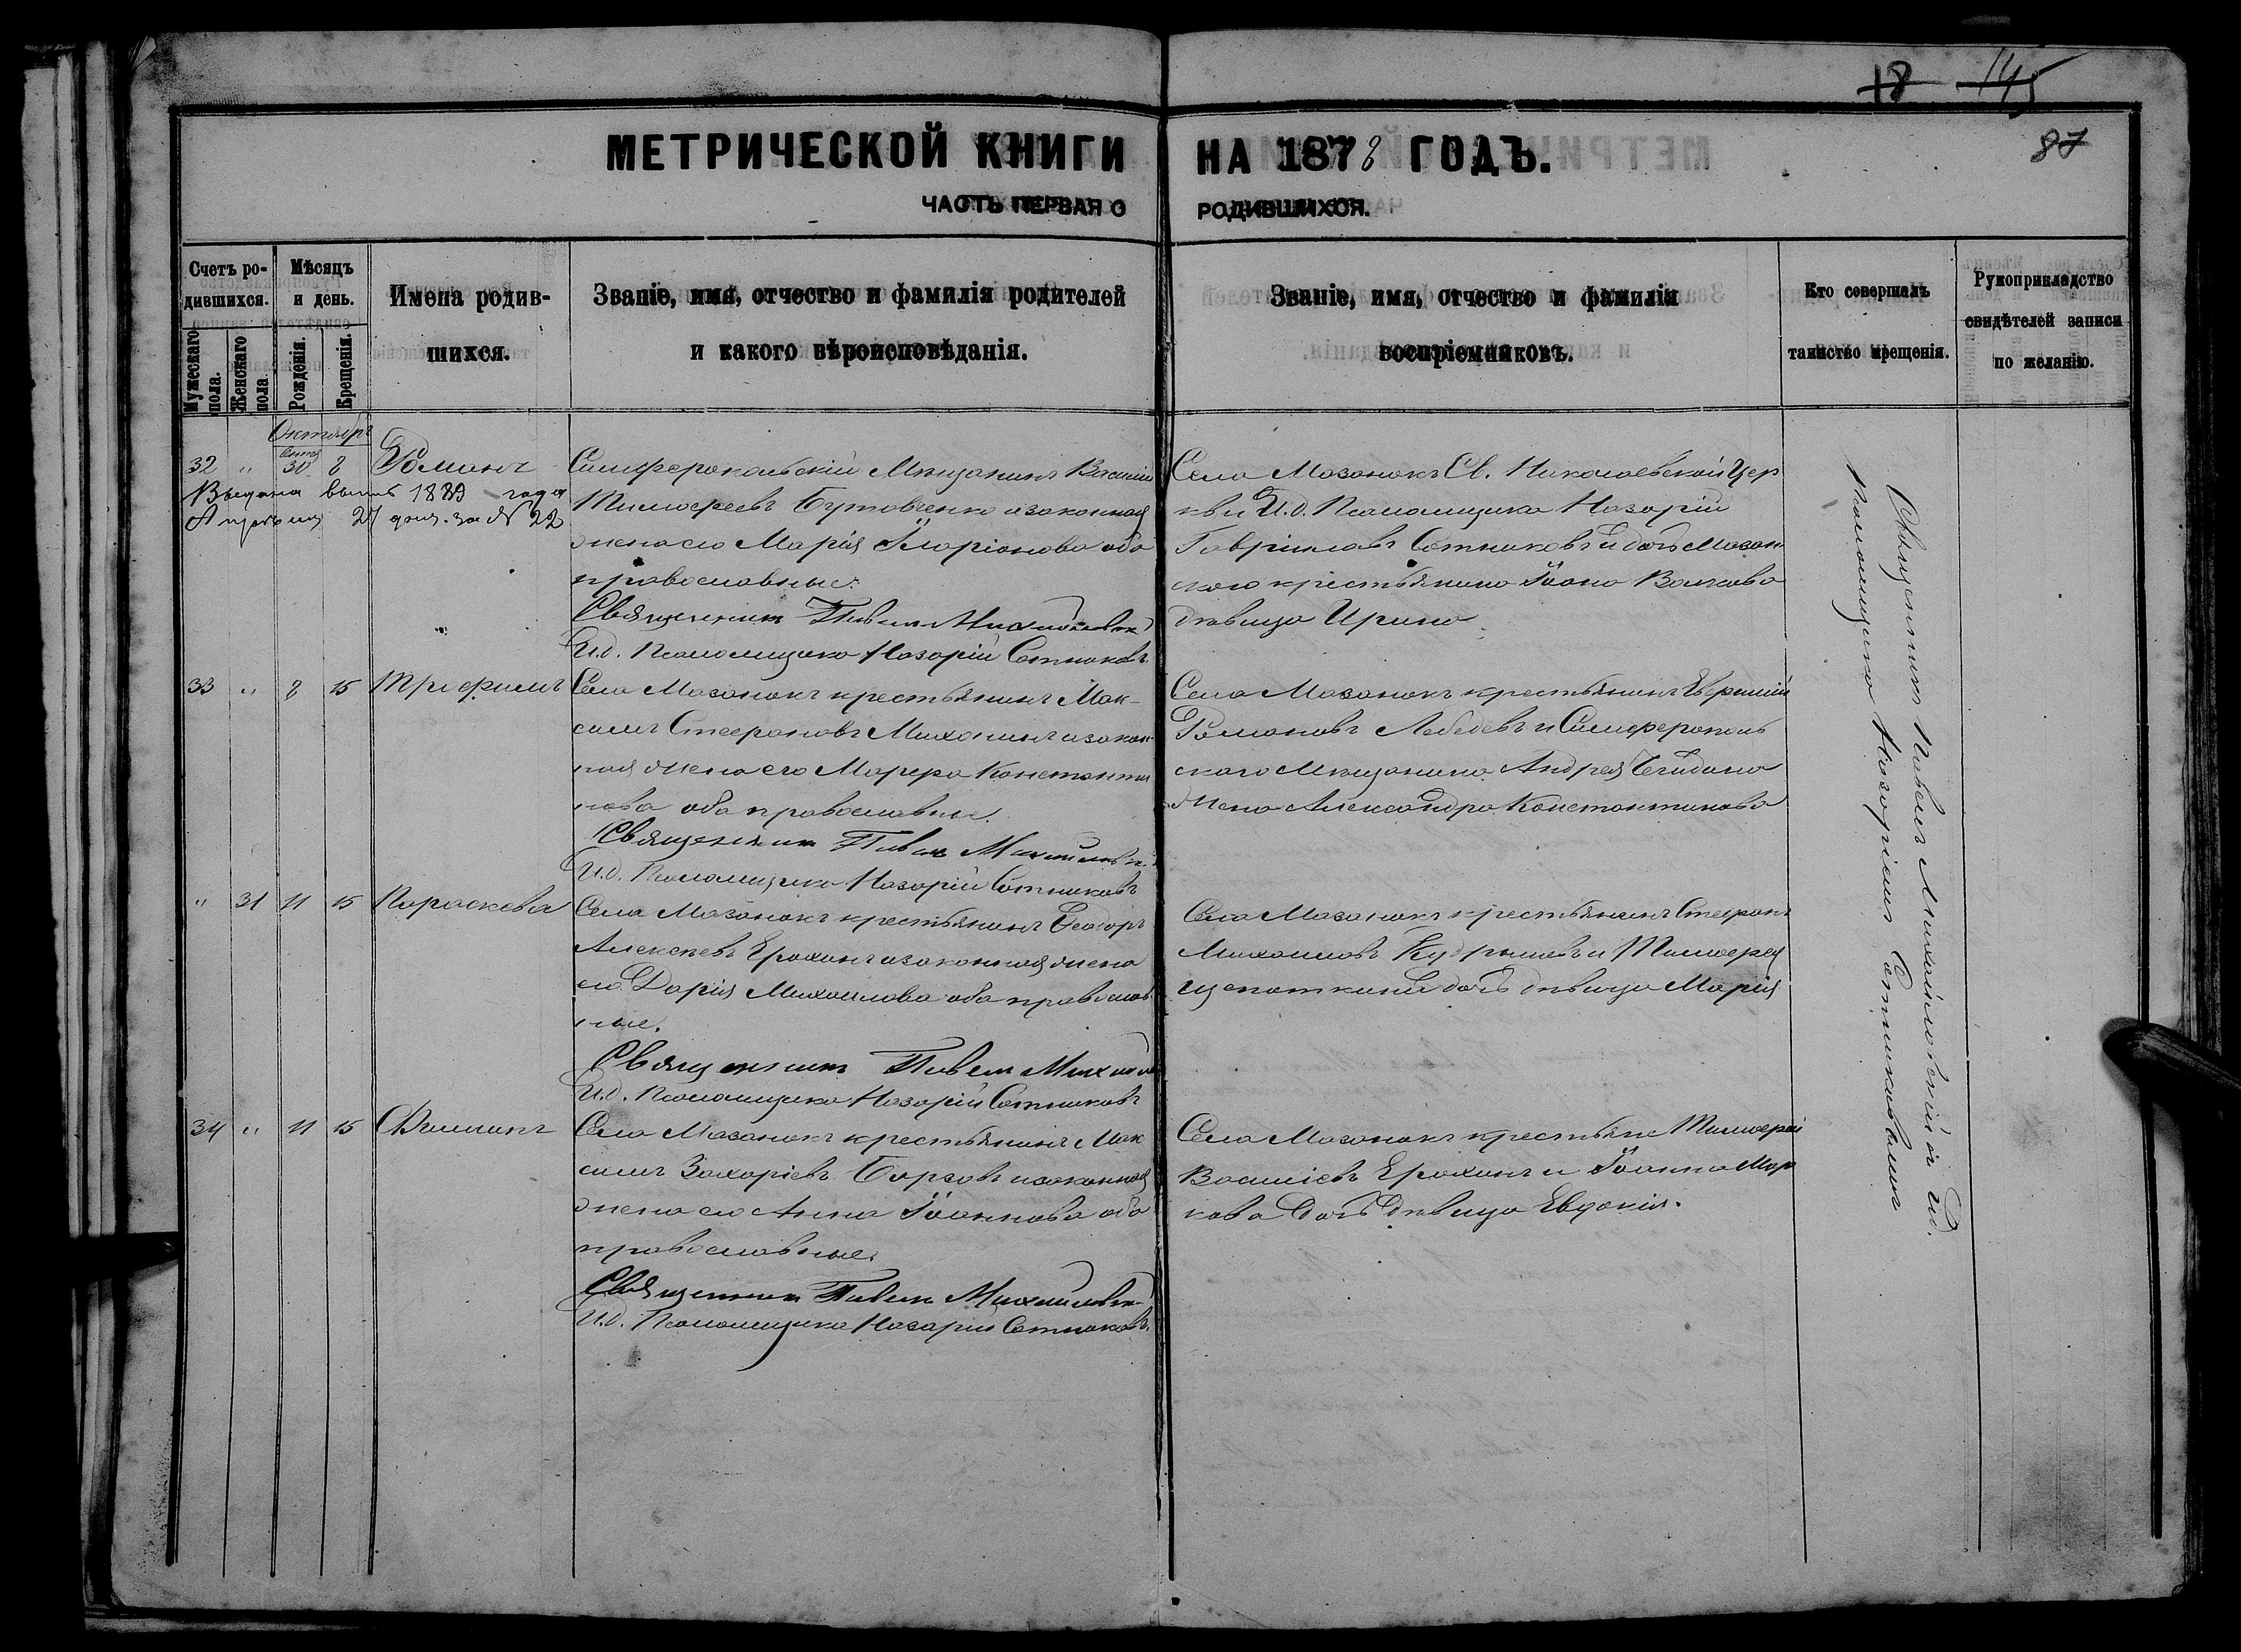 18 145
87
МЕТРИЧЕСКОЙ КНИГИ НА 1878 ГОДЪ.
ЧАСТЬ ПЕРВАЯ О РОДИВШИХСЯ.
Счетъ ро-
дившихся.
Мужескаго пола.
Женскаго пола
Мѣсяцъ
и день.
Рожденія.
Крещенія.
Имена родив-
шихся.
Званіе, имя, отчество и фамилія родителей
и какого вѣроисповѣданія.
Званіе, имя, отчество и фамилія
воспріемниковъ.
Кто совершалъ
таинство крещенія.
Рукоприкладство
свидѣтелей записи
по желанію.
Октябрь
32 " Сент. 30 8 Романъ
1889 года
Апрѣля 27 дня. за № 22
Симферопольскій Мѣщанинъ Василій
Тимофеевъ Бутовченко и законная
жена его Марія Иларіонова оба
православные.
Священникъ Павелъ Михайловскій
И.д. Псаломщика Назарій Сотниковъ
Села Мазанокъ Св. Николаевской Цер
кви И.д. Псаломщика Назарій
Гавріиловъ Сотниковъ и дочь Мазан
ского крестьянина Іоана Волкова
дѣвица Ирина
33 " 8 15 Трофимъ
Села Мазанокъ крестьянинъ Мак-
симъ Стефановъ Миханинъ и закон-
ная жена его Марфа Константи
нова оба православные.
Священникъ Павелъ Михайловскій
И.д. Псаломщика Назарій Сотниковъ
Села Мазанокъ крестьянинъ
Романовъ Лебедевъ и Симферополь
скаго Мѣщанина Андрея
жена Александра Константинова
" 31 11 15 Параскева
Села Мазанокъ крестьянинъ Ѳеодоръ
Алексѣевъ Ерохинъ и законная жена
его Дарія Михаилова оба православ
ные.
Священникъ Павелъ Михайловскій
И.д. Псаломщика Назарій Сотниковъ
Села Мазанокъ крестьянинъ Стефанъ
Михаиловъ и Тимофея
Щепоткина дочь дѣвица Марія
34 " 11 15 Филипъ
Села Мазанокъ крестьянинъ Мак
симъ Захаріевъ Борзовъ и законная
жена его Анна Іоаннова оба
православные.
Священникъ Павелъ Михайловскій
И.д. Псаломщика Назарій Сотниковъ.
Села Мазанокъ крестьяне Тимофей
Василіевъ Ерохинъ и Іоанна Мар
кова дочь дѣвица Евдокія.
Священникъ Павелъ Михайловскій съ И.д.
Псаломщика Назаріемъ Сотниковымъ